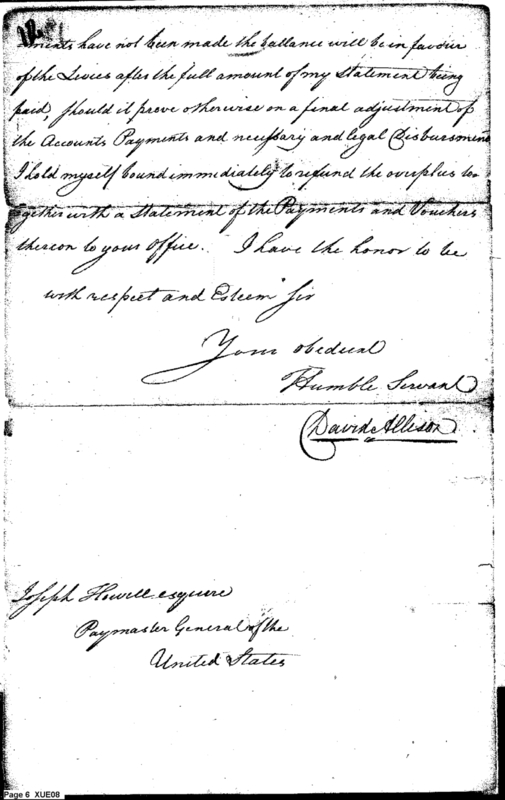 ments have not been made the ballance will be in favour
of the Levies after the full amount of my Statement being
paid, should it prove otherwise on a final adjustment of
the Accounts Payments and necessary and legal Disbursmens
I hold myself bound immediately to refund the overplus to
ogether with a Statement of the Payments and Vouchers
thereon to your Office. I have the honor to be
with respect and Esteem Sir
Your obedient
Humble Servant
David Allison
Joseph Howell esquire
Paymaster General of the
United States
Page 6 XUE08